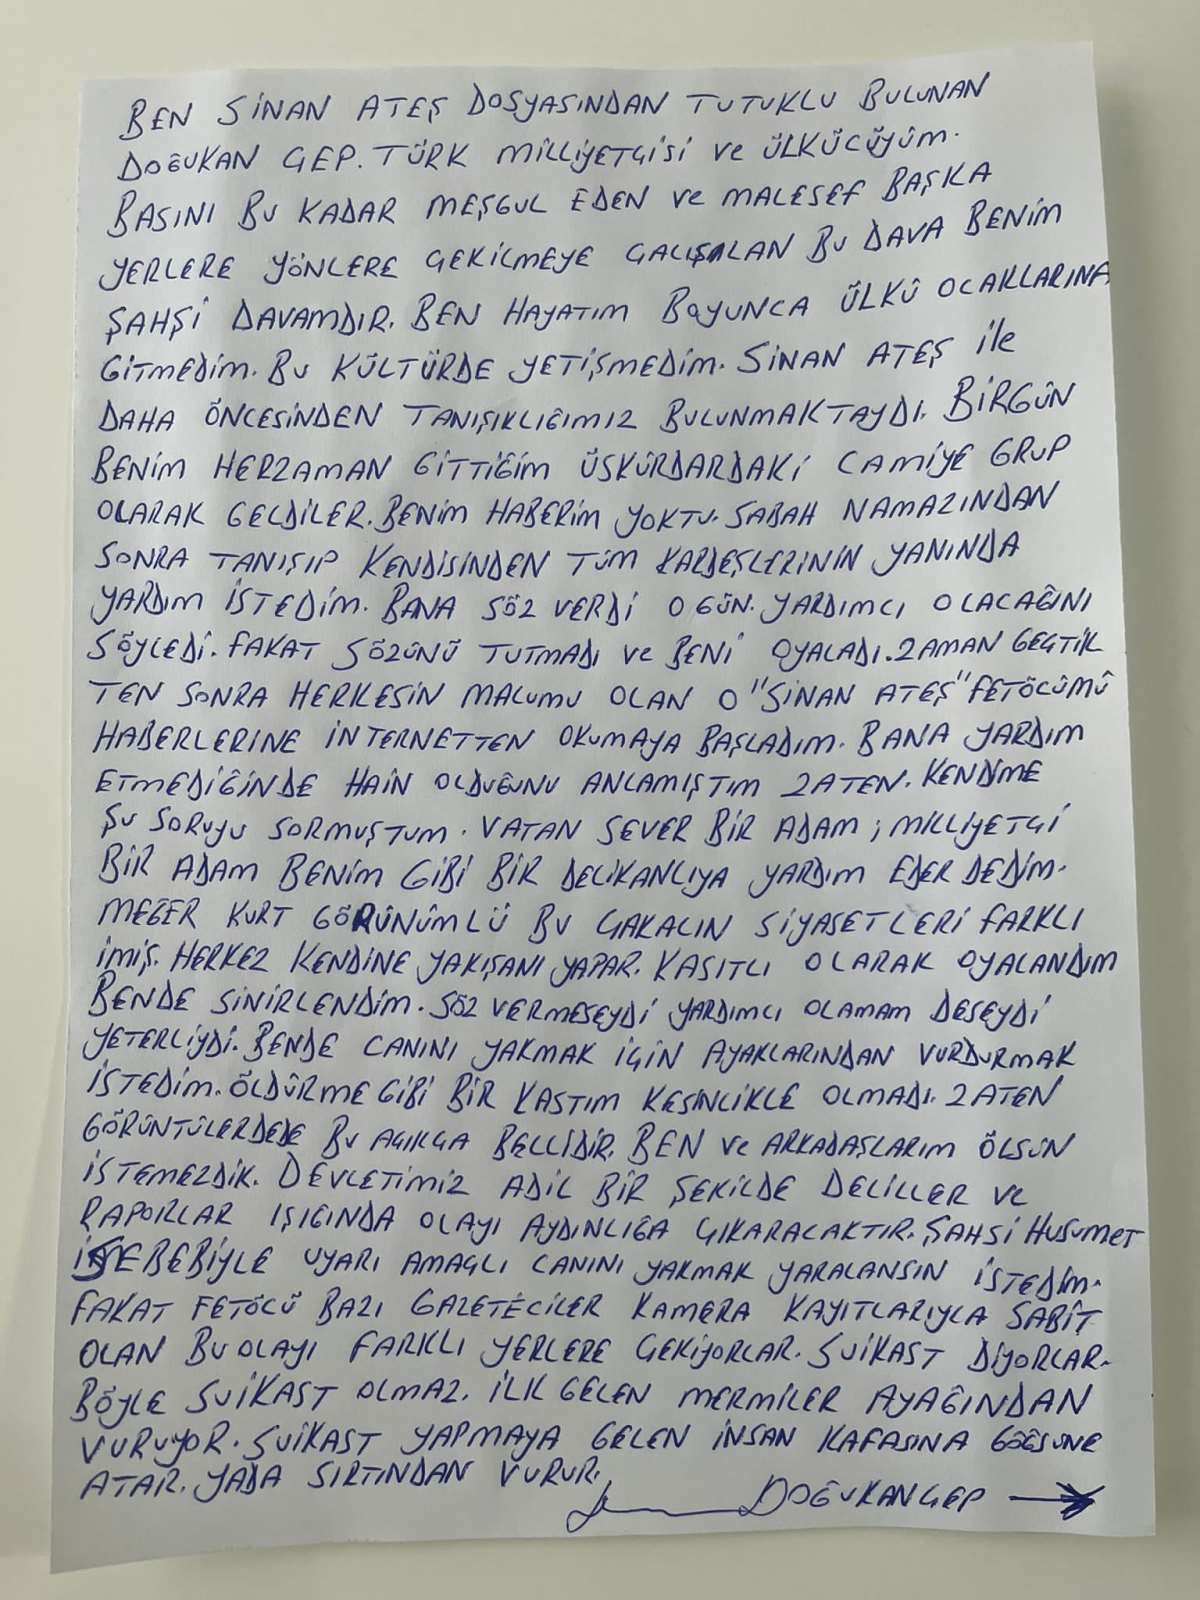 BEN SİNAN ATEŞ DOSYASINDAN TUTUKLU BULUNAN
DOĞUKAN ÇEP. TÜRK MİLLİYETÇİSİ ve ÜLKÜCÜYÜM.
BASINI BU KADAR MEŞGUL EDEN ve MALESEF BAŞKA
YERLERE YÖNLERE ÇEKİLMEYE ÇALIŞILAN BU DAVA BENİM
ŞAHŞİ DAVAMDIR. BEN HAYATIM BOYUNCA ÜLKÜ OCAKLARINA
GİTMEDİM. BU KÜLTÜRDE YETİŞMEDİM. SİNAN ATEŞ ile
DAHA ÖNCESİNDEN TANIŞIKLIĞIMIZ BULUNMAKTAYDI. BİRGÜN
BENİM HERZAMAN GİTTİĞİM ÜSKÜRDARDAKİ CAMİYE GRUP
OLARAK GELDİLER. BENİM HABERİM YOKTU. SABAH NAMAZINDAN
SONRA TANIŞIP KENDİSİNDEN TÜM KARDEŞLERİNİN YANINDA
YARDIM İSTEDİM. BANA SÖZ VERDİ O GÜN. YARDIMCI OLACAĞINI
SÖYLEDİ. FAKAT SÖZÜNÜ TUTMADI ve BENİ OYALADI. ZAMAN GEÇTİK
TEN SONRA HERKESİN MALUMU OLAN O "SİNAN ATEŞ" FETÖCÜMÜ
HABERLERİNE İNTERNETTEN OKUMAYA BAŞLADIM. BANA YARDIM
ETMEDİĞİNDE HAİN OLDUĞUNU ANLAMIŞTIM ZATEN. KENDİME
ŞU SORUYU SORMUŞTUM. VATAN SEVER BİR ADAM; MİLLİYETÇİ
BİR ADAM BENİM GİBİ BİR DELİKANLIYA YARDIM EDER DEDİM.
MEĞER KURT GÖRÜNÜMLÜ BU ÇAKALIN SİYASETLERİ FARKLI
İMİŞ. HERKEZ KENDİNE YAKIŞANI YAPAR. KASITLI OLARAK OYALANDIM
BENDE SİNİRLENDİM. SÖZ VERMESEYDİ YARDIMCI OLAMAM DESEYDİ
YETERLİYDİ. BENDE CANINI YAKMAK İÇİN AYAKLARINDAN VURDURMAK
İSTEDİM. ÖLDÜRME GİBİ BİR KASTIM KESİNLİKLE OLMADI. ZATEN
GÖRÜNTÜLERDEDE BU AÇIKÇA BELLİDİR. BEN ve ARKADAŞLARIM ÖLSÜN
İSTEMEZDİK. DEVLETİMİZ ADİL BİR ŞEKİLDE DELİLLER ve
RAPORLAR IŞIĞINDA OLAYI AYDINLIĞA ÇIKARACAKTIR. ŞAHSİ HUSUMET
SEBEBİYLE UYARI AMAÇLI CANINI YAKMAK YARALANSIN İSTEDİM.
FAKAT FETÖCÜ BAZI GAZETECİLER KAMERA KAYITLARIYLA SABİT
OLAN BU OLAYI FARKLI YERLERE ÇEKİYORLAR. SUİKAST DİYORLAR.
BÖYLE SUİKAST OLMAZ. İLK GELEN MERMİLER AYAĞINDAN
VURUYOR. SUİKAST YAPMAYA GELEN İNSAN KAFASINA GÖĞSÜNE
ATAR. YADA SIRTINDAN VURUR.
DOĞUKAN ÇEP →